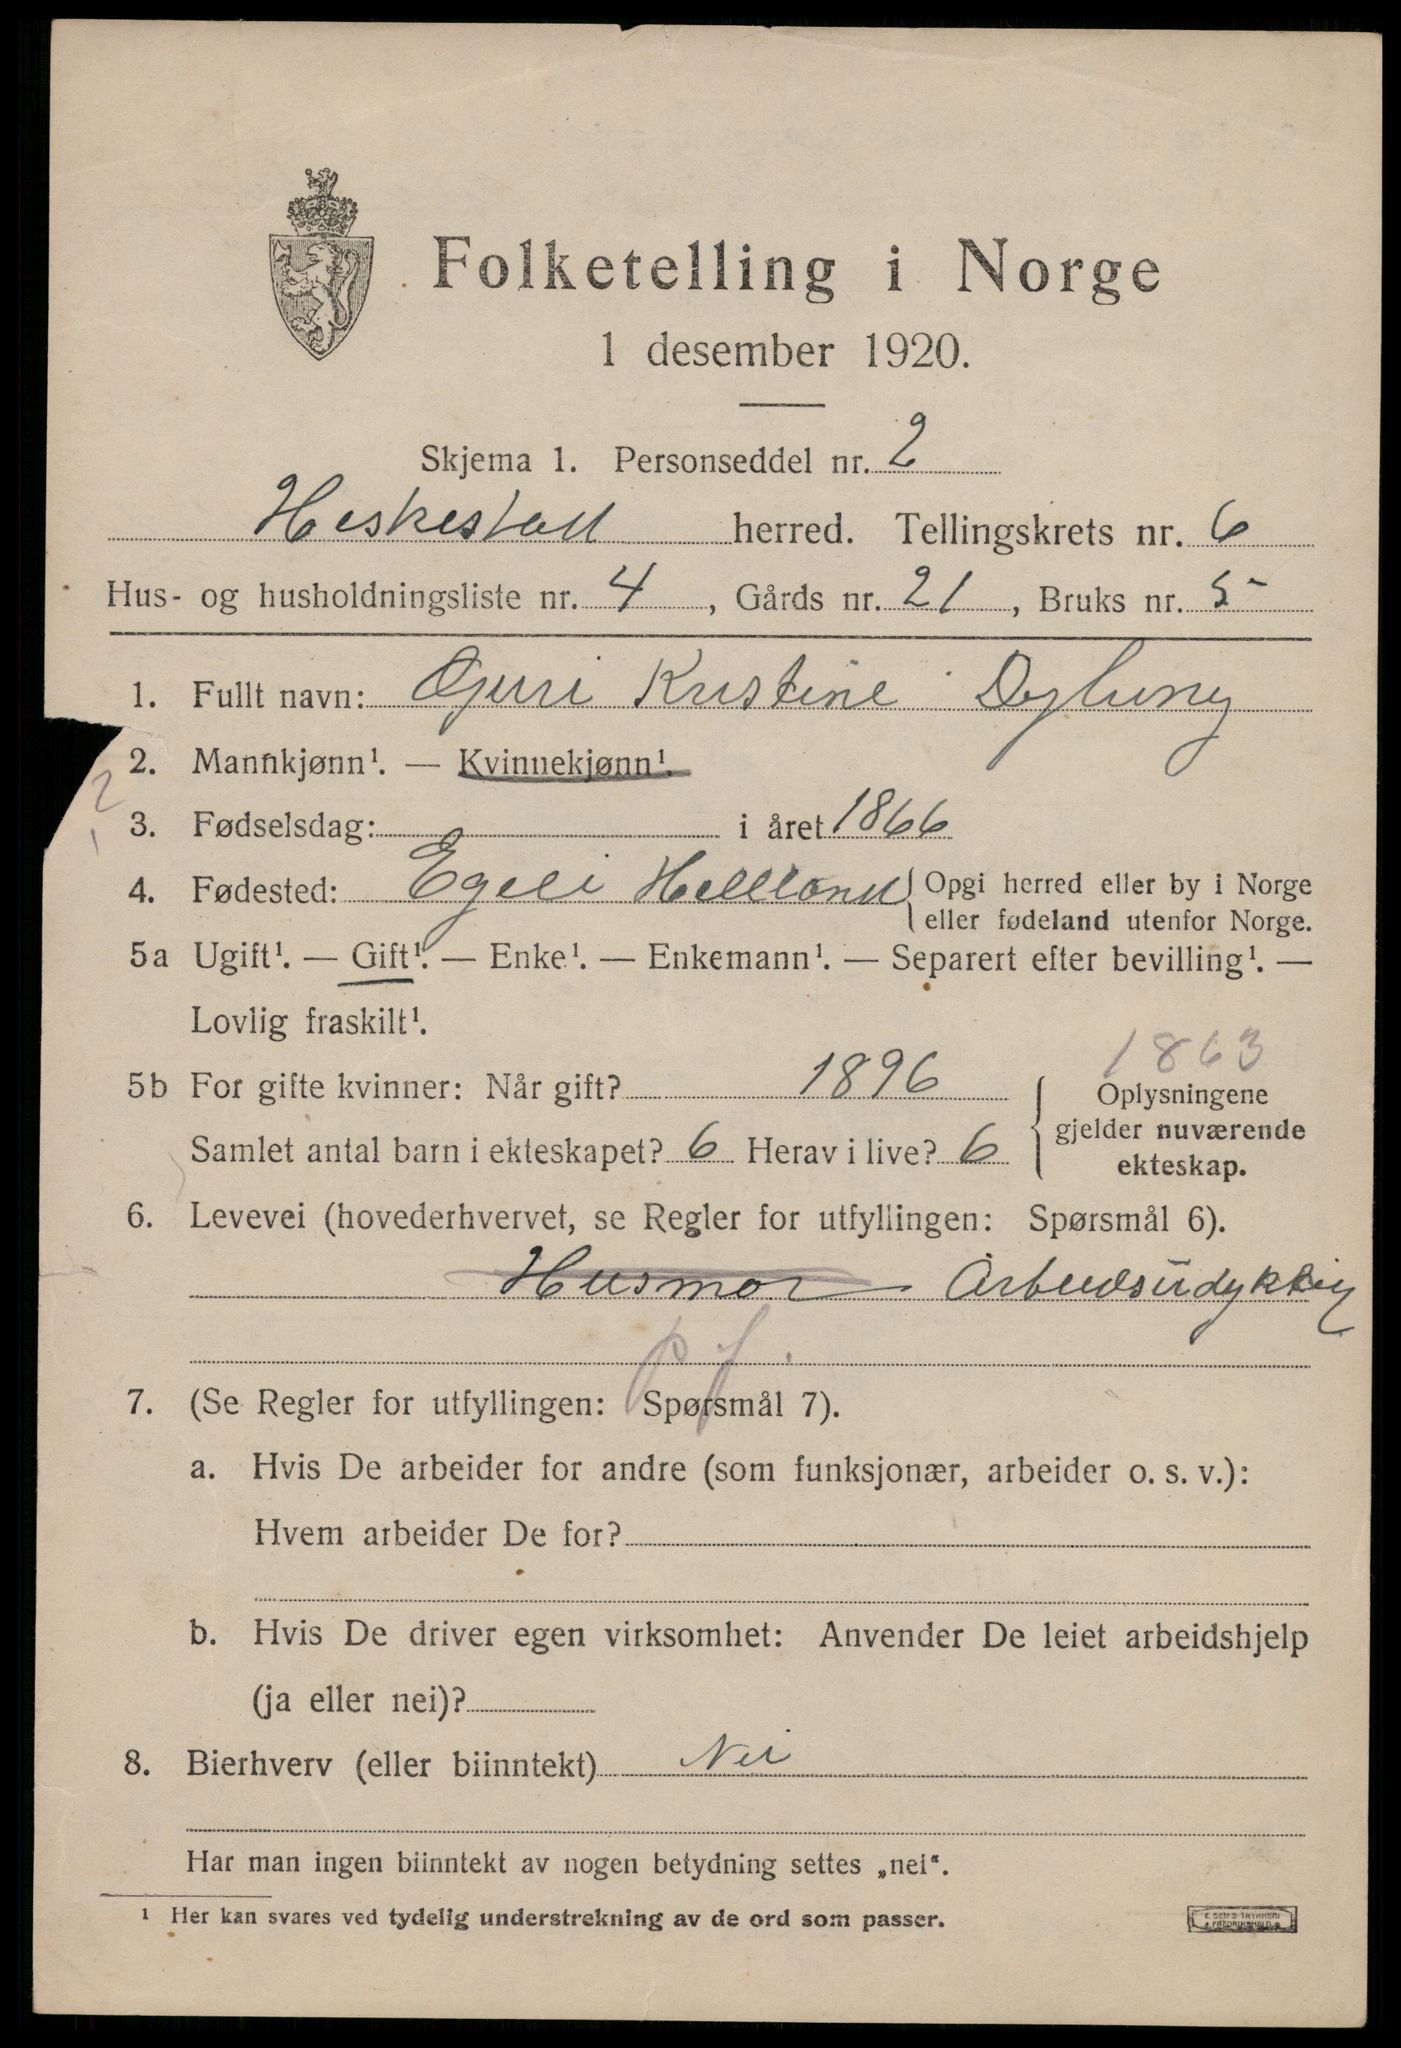 Folketelling i Norge
1 desember 1920.
Skjema 1. Personseddel nr. 2
Heskestad herred. Tellingskrets nr. 6
Hus- og husholdningsliste nr. 4, Gårds nr. 21, Bruks nr. 5
1. Fullt navn: Guri Kristine
2. Mannkjønn¹. — Kvinnekjønn¹.
2
3. Fødselsdag: i året 1866
4. Fødested: Egeli Helland Opgi herred eller by i Norge
eller fødeland utenfor Norge.
5a Ugift¹. — Gift¹. — Enke¹. — Enkemann¹. — Separert efter bevilling¹. —
Lovlig fraskilt¹.
1863
5b For gifte kvinner: Når gift? 1896 Oplysningene
gjelder nuværende
Samlet antal barn i ekteskapet? 6 Herav i live? 6
ekteskap.
6. Levevei (hovederhvervet, se Regler for utfyllingen: Spørsmål 6).
Husmor Arbeidsudyktig
p f.
7. (Se Regler for utfyllingen: Spørsmål 7).
a. Hvis De arbeider for andre (som funksjonær, arbeider o. s. v.):
Hvem arbeider De for?
b. Hvis De driver egen virksomhet: Anvender De leiet arbeidshjelp
(ja eller nei)?
8. Bierhverv (eller biinntekt) Nei
Har man ingen biinntekt av nogen betydning settes „nei“.
¹ Her kan svares ved tydelig understrekning av de ord som passer.
E SEM'S TRYKKERI
FREDRIKSHALD